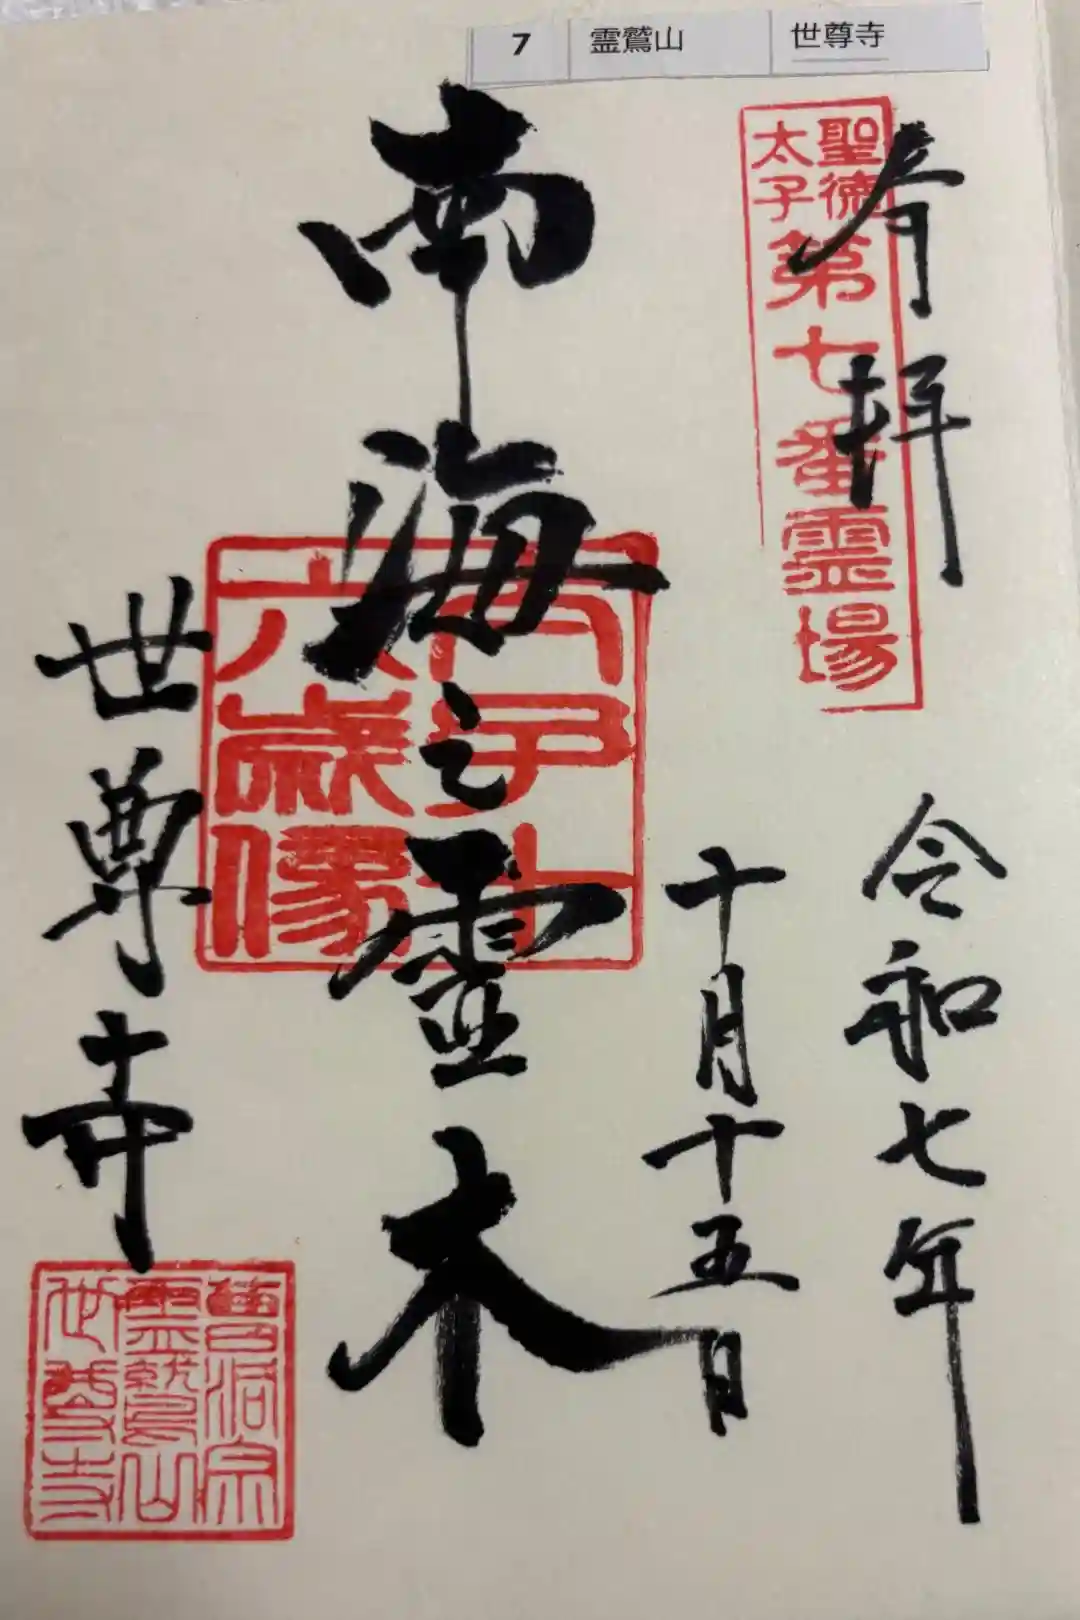 7 霊鷲山 世尊寺
奉拝
聖徳
太子
第七番霊場
令和七年
十月十五日
南海之靈木
太子十
六歳像
世尊寺
曹洞宗
霊鷲山
世尊寺